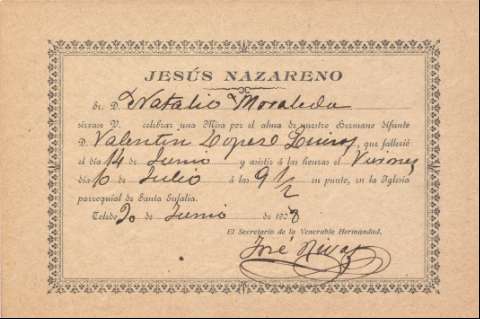 JESÚS NAZARENO
Sr. D. Natalio Moraleda
sírvase V. celebrar una Misa por el alma de nuestro Hermano difunto
D. Valentín López Quiroz, que falleció
el día 14 de Junio y asistir á las honras el Viernes
día 6 de Julio á las 9 1/2 en punto, en la Iglesia
parroquial de Santa Eulalia.
Toledo 20 de Junio de 1928
El Secretario de la Venerable Hermandad,
José Rivas